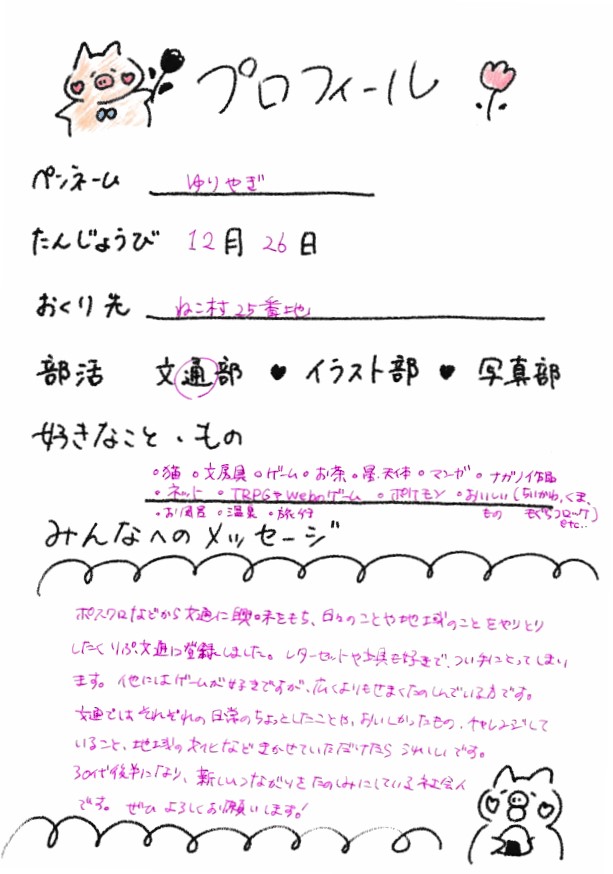 プロフィール
ペンネーム ゆりやぎ
たんじょうび 12月 26日
おくり先 ねこ村25番地
部活 文通部 ♥ イラスト部 ♥ 写真部
好きなこと・もの
○猫 ○文房具 ○ゲーム ○お茶 ○星、天体 ○マンガ ○ナガノ作品
○ネット ○TRPGやwebのゲーム ○ポケモン ○おいしいもの (ちいかわ、くま、もぐらコロッケ etc..)
○お風呂 ○温泉 ○旅行
みんなへのメッセージ
ポスクロなどから文通に興味をもち、日々のことや地域のことをやりとり
したくりぷ文通に登録しました。レターセットや文具も好きで、つい手にとってしまい
ます。他にはゲームが好きですが、広くよりもせまくたのしんでいる方です。
文通ではそれぞれの日常のちょっとしたことや、おいしかったもの、チャレンジして
いること、地域の文化などきかせていただけたらうれしいです。
30代後半になり、新しいつながりをたのしみにしている社会人
です。ぜひよろしくお願いします！